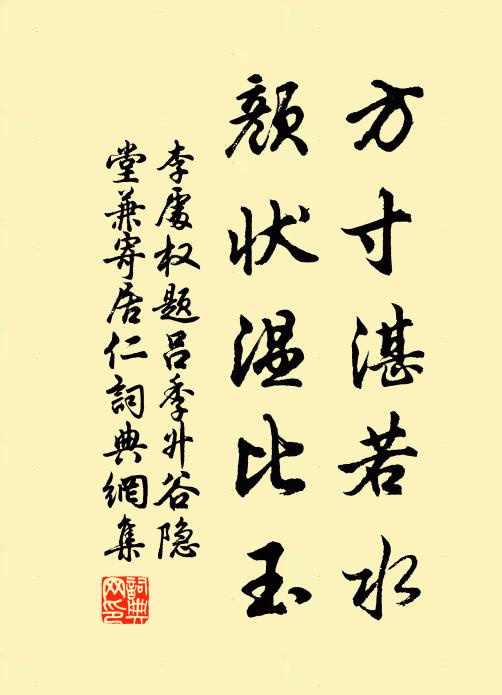 方寸湛若水
顏状温比玉
李處权题吕季升谷隐
堂兼寄居仁詞典網集
詞典
网印